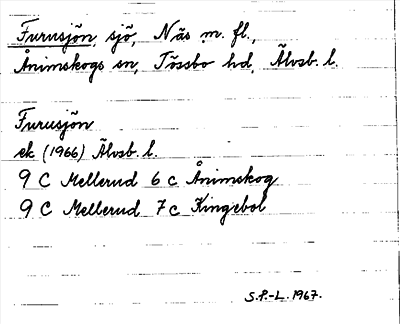 Furusjön, sjö, Näs m. fl.,
Ånimskogs sn, Tössbo hd, Älvsb. l.
Furusjön
ek (1966) Älvsb. l.
9 C Mellerud 6 c Ånimskog
9 C Mellerud 7 c Kingebol
S.P.-L. 1967.